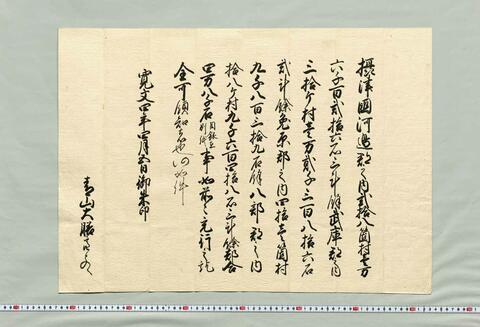 摂津國河邊郡之内貳拾八箇村壱万
六千百貳拾六石三斗餘武庫郡之内
三拾ケ村壱万貳千三百八拾六石
貳斗餘菟原郡之内四拾壱箇村
九千八百三拾九石餘八部郡之内
拾八ケ村九千六百四拾八石三斗餘都合
四万八千石目録在別紙事如前々充行之訖
全可領知者也仍如件
寛文四年四月五日御朱印
青山大膳亮とのへ